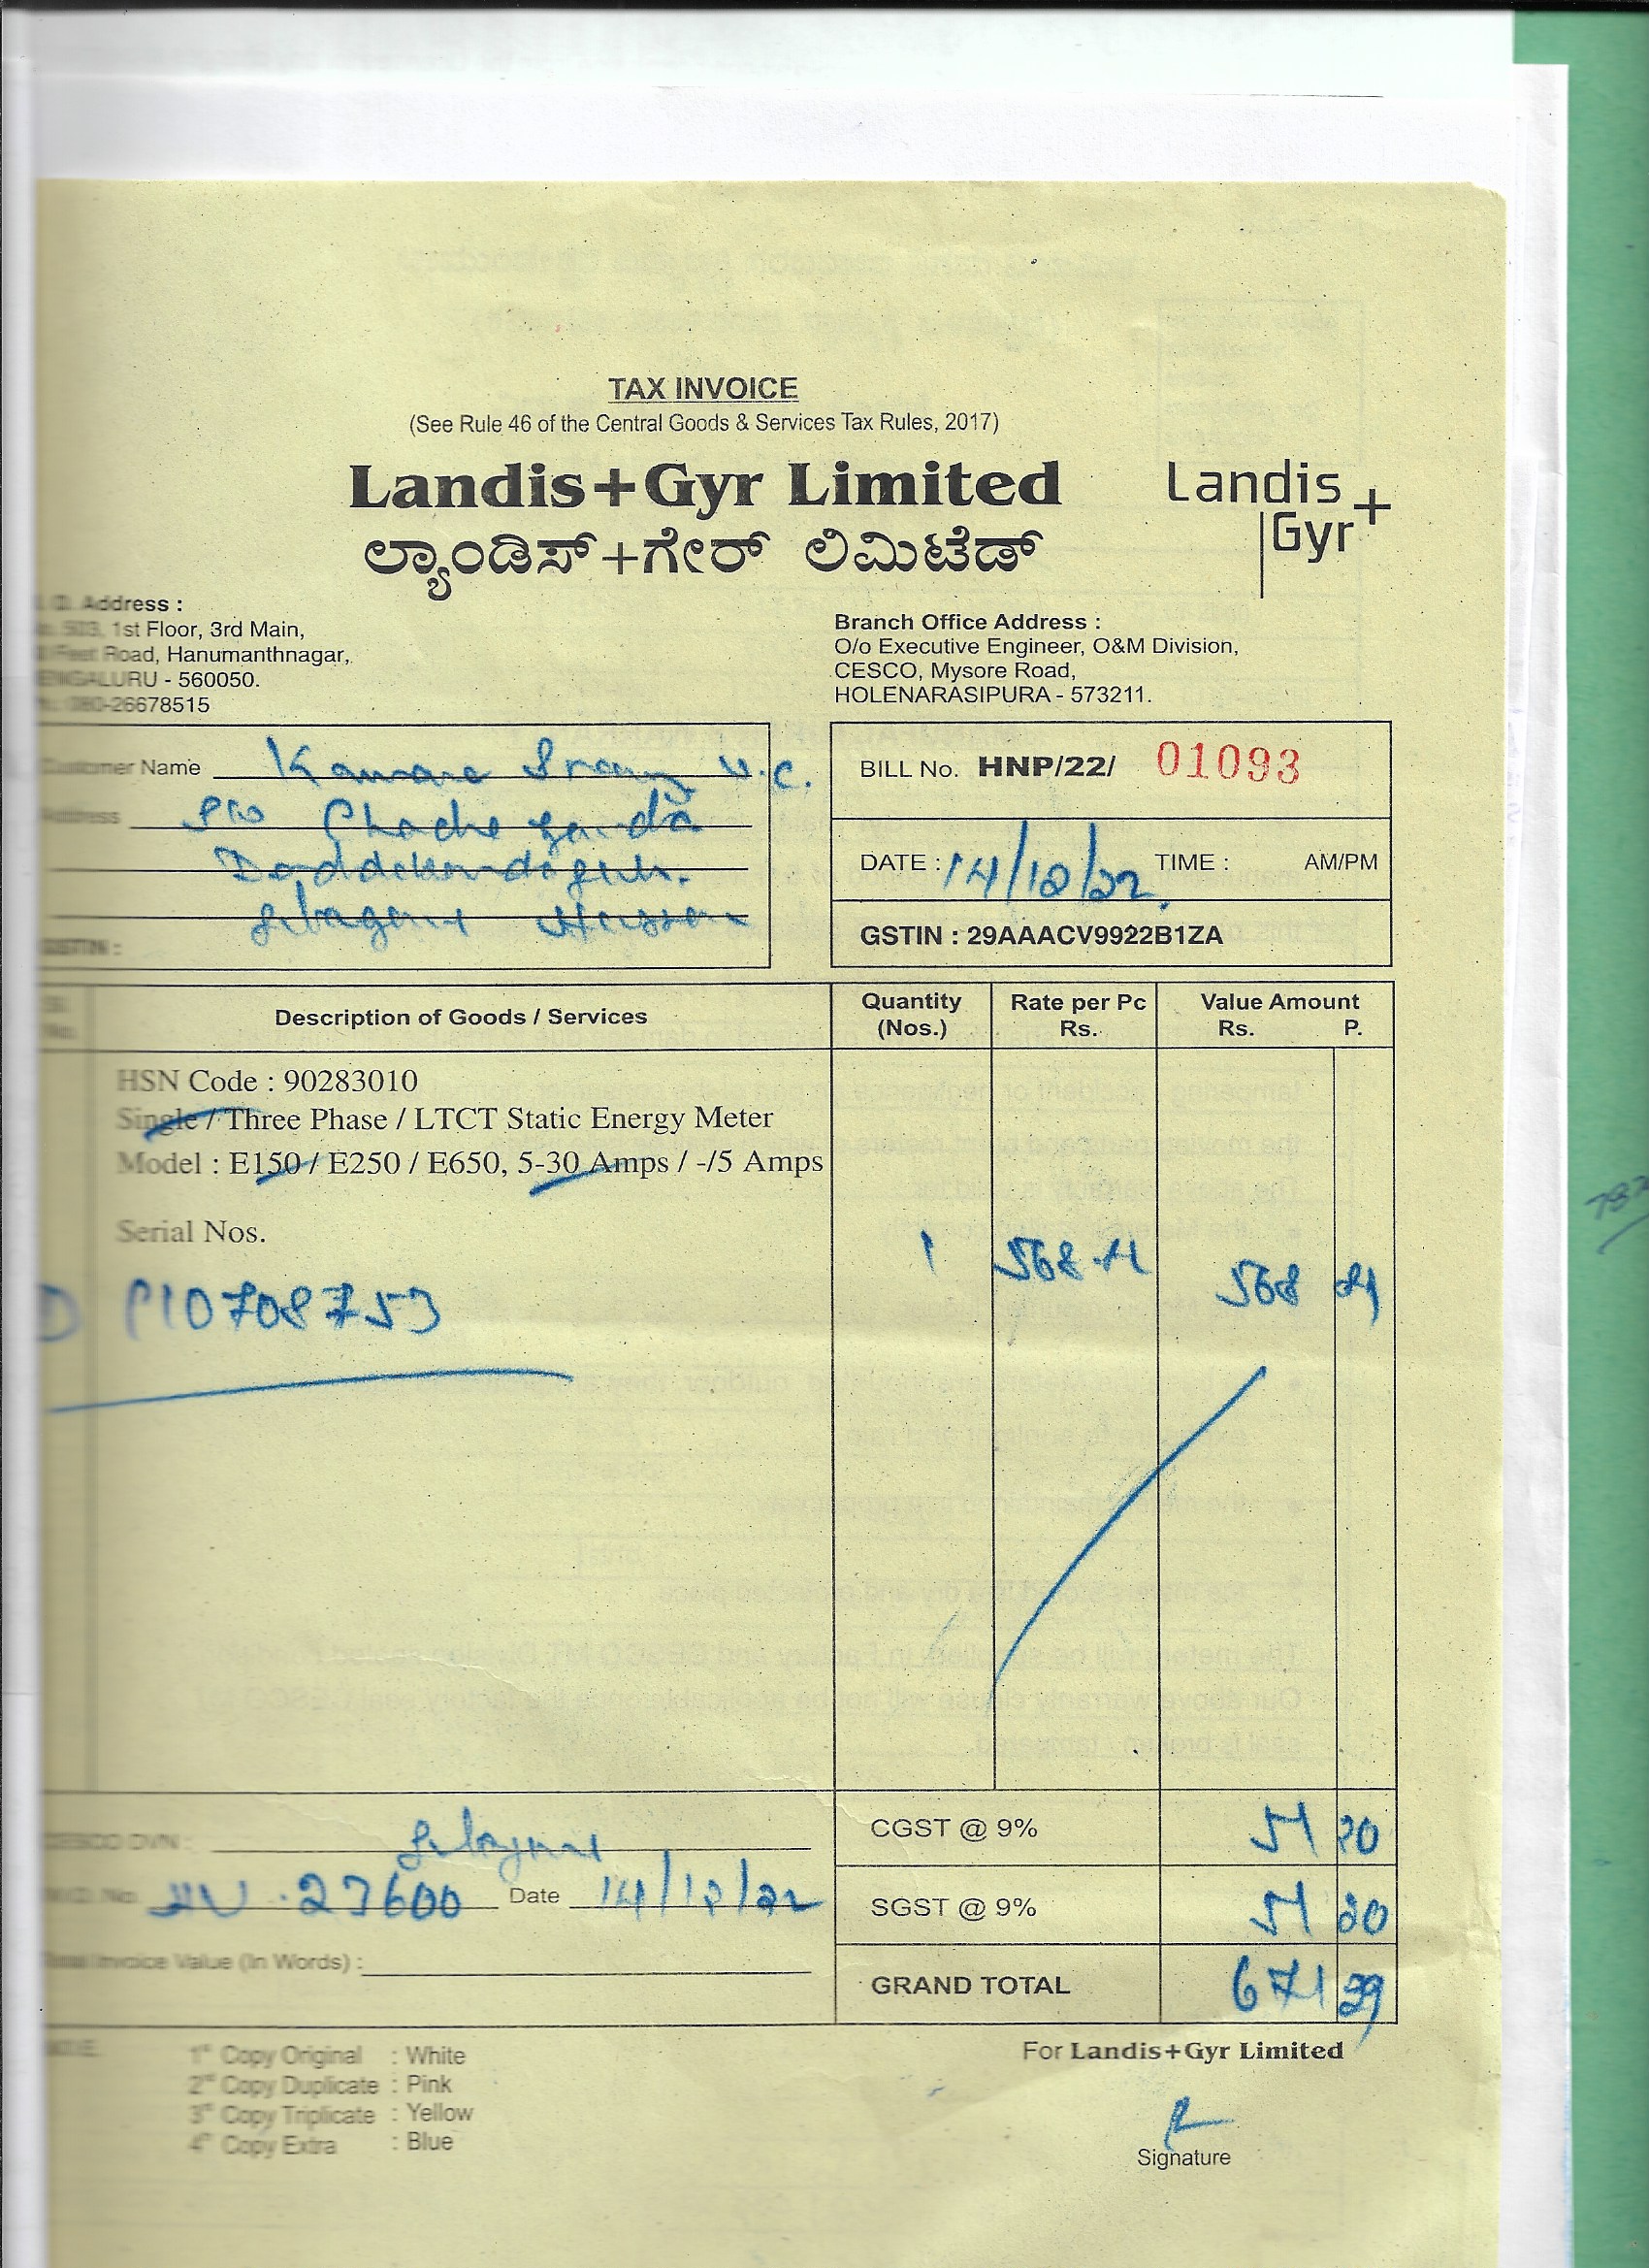 TAX INVOICE
(See Rule 46 of the Central Goods & Services Tax Rules, 2017)
Landis+Gyr Limited
Landis+
Gyr
ಲ್ಯಾಂಡಿಸ್+ಗೇರ್ ಲಿಮಿಟೆಡ್
Address :
503, 1st Floor, 3rd Main,
Feet Road, Hanumanthnagar,
BENGALURU - 560050.
080-26678515
Branch Office Address :
O/o Executive Engineer, O&M Division,
CESCO, Mysore Road,
HOLENARASIPURA - 573211.
Customer Name
Address
GSTIN :
BILL No. HNP/22/ 01093
DATE : 14/12/22 TIME : AM/PM
GSTIN : 29AAACV9922B1ZA
Sl. No. Description of Goods / Services Quantity (Nos.) Rate per Pc Rs. Value Amount Rs. P.
HSN Code : 90283010
Single / Three Phase / LTCT Static Energy Meter
Model : E150 / E250 / E650, 5-30 Amps / -/5 Amps
Serial Nos.
P10708753 1 568 568
CGST @ 9% 51 20
CESCO DVN :
27600 Date 14/12/22
SGST @ 9% 51 20
Total Invoice Value (In Words) :
GRAND TOTAL 671 39
NOTE: 1st Copy Original : White
2nd Copy Duplicate : Pink
3rd Copy Triplicate : Yellow
4th Copy Extra : Blue
For Landis+Gyr Limited
Signature